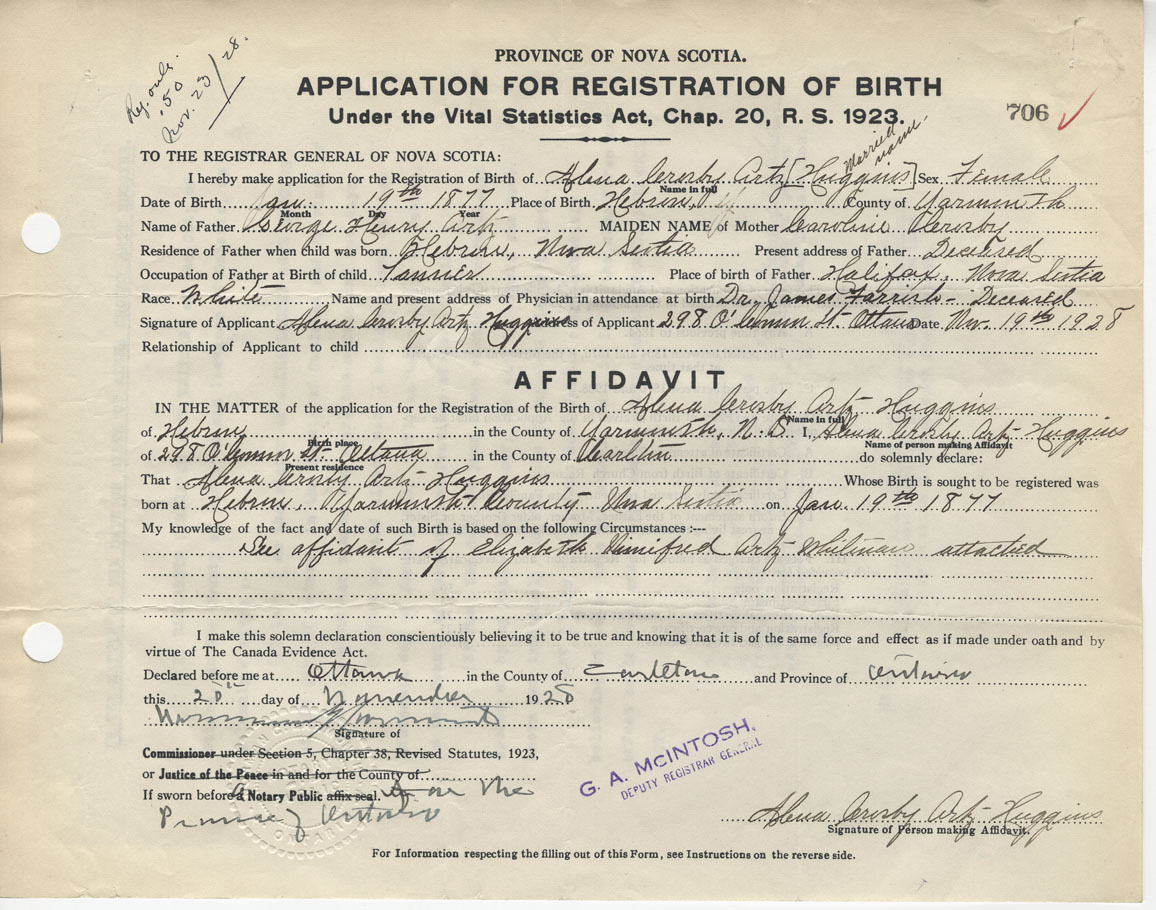 Reg. only.
.50
Nov. 23/28.
PROVINCE OF NOVA SCOTIA.
APPLICATION FOR REGISTRATION OF BIRTH
Under the Vital Statistics Act, Chap. 20, R. S. 1923.
706
Married name.
TO THE REGISTRAR GENERAL OF NOVA SCOTIA:
I hereby make application for the Registration of Birth of Alena Crosby Artz [Huggins] Sex Female
Name in full
Date of Birth Jan. 19th 1877 Place of Birth Hebron, County of Yarmouth
Month Day Year
Name of Father George Henry Artz MAIDEN NAME of Mother Caroline Crosby
Residence of Father when child was born Hebron, Nova Scotia Present address of Father Deceased
Occupation of Father at Birth of child Tanner Place of birth of Father Halifax, Nova Scotia
Race White Name and present address of Physician in attendance at birth Dr. James Farrish - Deceased
Signature of Applicant Alena Crosby Artz Huggins Address of Applicant 298 O'Connor St. Ottawa Date Nov. 19th 1928
Relationship of Applicant to child
AFFIDAVIT
IN THE MATTER of the application for the Registration of the Birth of Alena Crosby Artz Huggins
Name in full
of Hebron in the County of Yarmouth, N. S I, Alena Crosby Artz Huggins
Birth place Name of person making Affidavit
of 298 O'Connor St. Ottawa in the County of Carleton do solemnly declare:
Present residence
That Alena Crosby Artz Huggins Whose Birth is sought to be registered was
born at Hebron, Yarmouth County Nova Scotia on Jan. 19th 1877
My knowledge of the fact and date of such Birth is based on the following Circumstances :---
See affidavit of Elizabeth Winifred Artz Whitman attached
I make this solemn declaration conscientiously believing it to be true and knowing that it is of the same force and effect as if made under oath and by
virtue of The Canada Evidence Act.
Declared before me at Ottawa in the County of Carleton and Province of Ontario
this 20th day of November 1928
Signature of
Commissioner under Section 5, Chapter 38, Revised Statutes, 1923,
or Justice of the Peace in and for the County of
If sworn before a Notary Public affix seal. for the
Province of Ontario
G. A. McINTOSH,
DEPUTY REGISTRAR GENERAL
Alena Crosby Artz Huggins
Signature of Person making Affidavit.
For Information respecting the filling out of this Form, see Instructions on the reverse side.